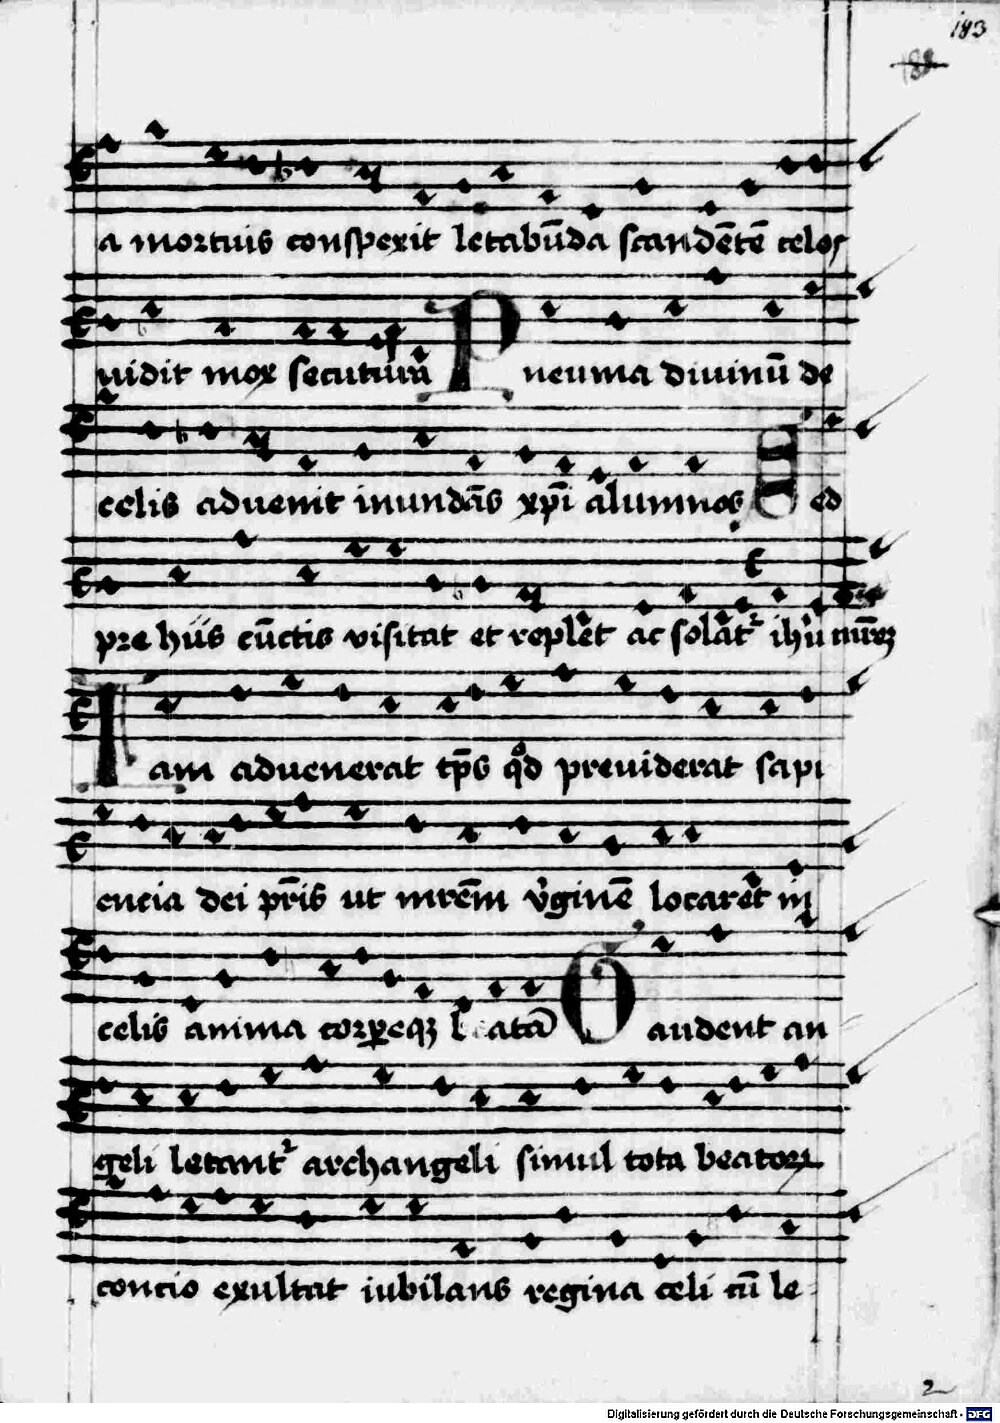 183
188
a mortuis conspexit letabūda scandētē celos
uidit mox secuturā Pneuma diuinū de
celis aduenit inundās xp̄i alumnos Sed
pre hiis cūctis visitat et replet ac solat᷑ ihū mr̄eꝫ
Iam aduenerat tp̄s qͦd preuiderat sapi
encia dei pr̄is ut mrēm v̓ginē locaret in
celis anima corꝑeqꝫ beatā Gaudent an
geli letant᷑ archangeli simul tota beatoꝝ
concio exultat iubilans regina celi cū le
2
Digitalisierung gefördert durch die Deutsche Forschungsgemeinschaft - DFG